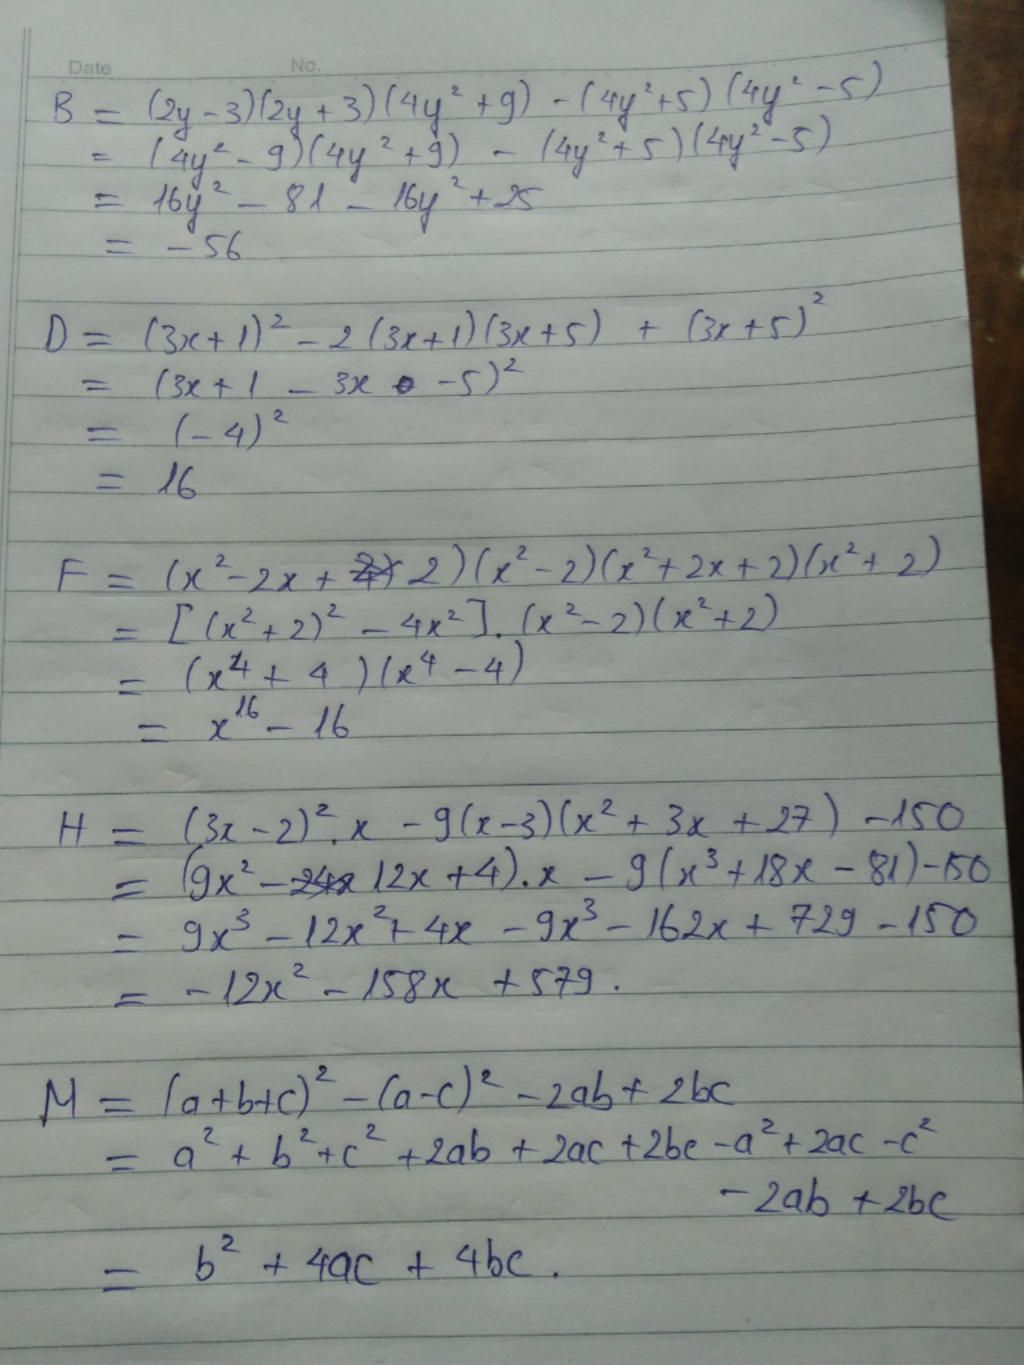 Date No.
B = (2y - 3)(2y + 3)(4y² + 9) - (4y² + 5)(4y² - 5)
= (4y² - 9)(4y² + 9) - (4y² + 5)(4y² - 5)
= 16y² - 81 - 16y² + 25
= - 56
D = (3x + 1)² - 2 (3x + 1)(3x + 5) + (3x + 5)²
= (3x + 1 - 3x - 5)²
= (- 4)²
= 16
F = (x² - 2x + 2)(x² - 2)(x² + 2x + 2)(x² + 2)
= [(x² + 2)² - 4x²] . (x² - 2)(x² + 2)
= (x⁴ + 4)(x⁴ - 4)
= x¹⁶ - 16
H = (3x - 2)² . x - 9(x - 3)(x² + 3x + 27) - 150
= (9x² - 12x + 4) . x - 9(x³ + 18x - 81) - 150
= 9x³ - 12x² + 4x - 9x³ - 162x + 729 - 150
= - 12x² - 158x + 579 .
M = (a + b + c)² - (a - c)² - 2ab + 2bc
= a² + b² + c² + 2ab + 2ac + 2bc - a² + 2ac - c²
- 2ab + 2bc
= b² + 4ac + 4bc .